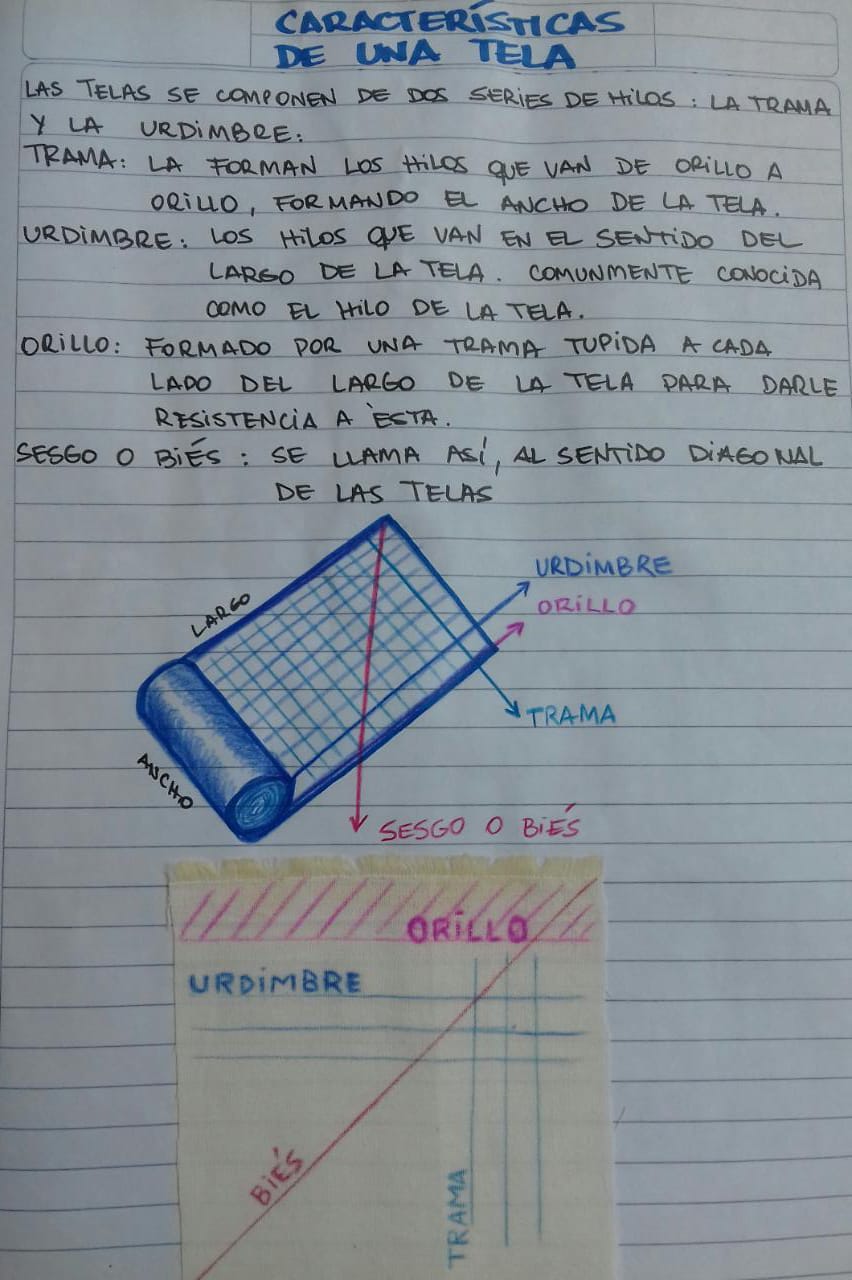 CARACTERÍSTICAS
DE UNA TELA
LAS TELAS SE COMPONEN DE DOS SERIES DE HILOS: LA TRAMA
Y LA URDIMBRE:
TRAMA: LA FORMAN LOS HILOS QUE VAN DE ORILLO A
ORILLO, FORMANDO EL ANCHO DE LA TELA.
URDIMBRE: LOS HILOS QUE VAN EN EL SENTIDO DEL
LARGO DE LA TELA. COMUNMENTE CONOCIDA
COMO EL HILO DE LA TELA.
ORILLO: FORMADO POR UNA TRAMA TUPIDA A CADA
LADO DEL LARGO DE LA TELA PARA DARLE
RESISTENCIA A ÉSTA.
SESGO O BIÉS: SE LLAMA ASÍ, AL SENTIDO DIAGONAL
DE LAS TELAS
URDIMBRE
ORILLO
LARGO
TRAMA
ANCHO
SESGO O BIÉS
ORILLO
URDIMBRE
BIÉS
TRAMA